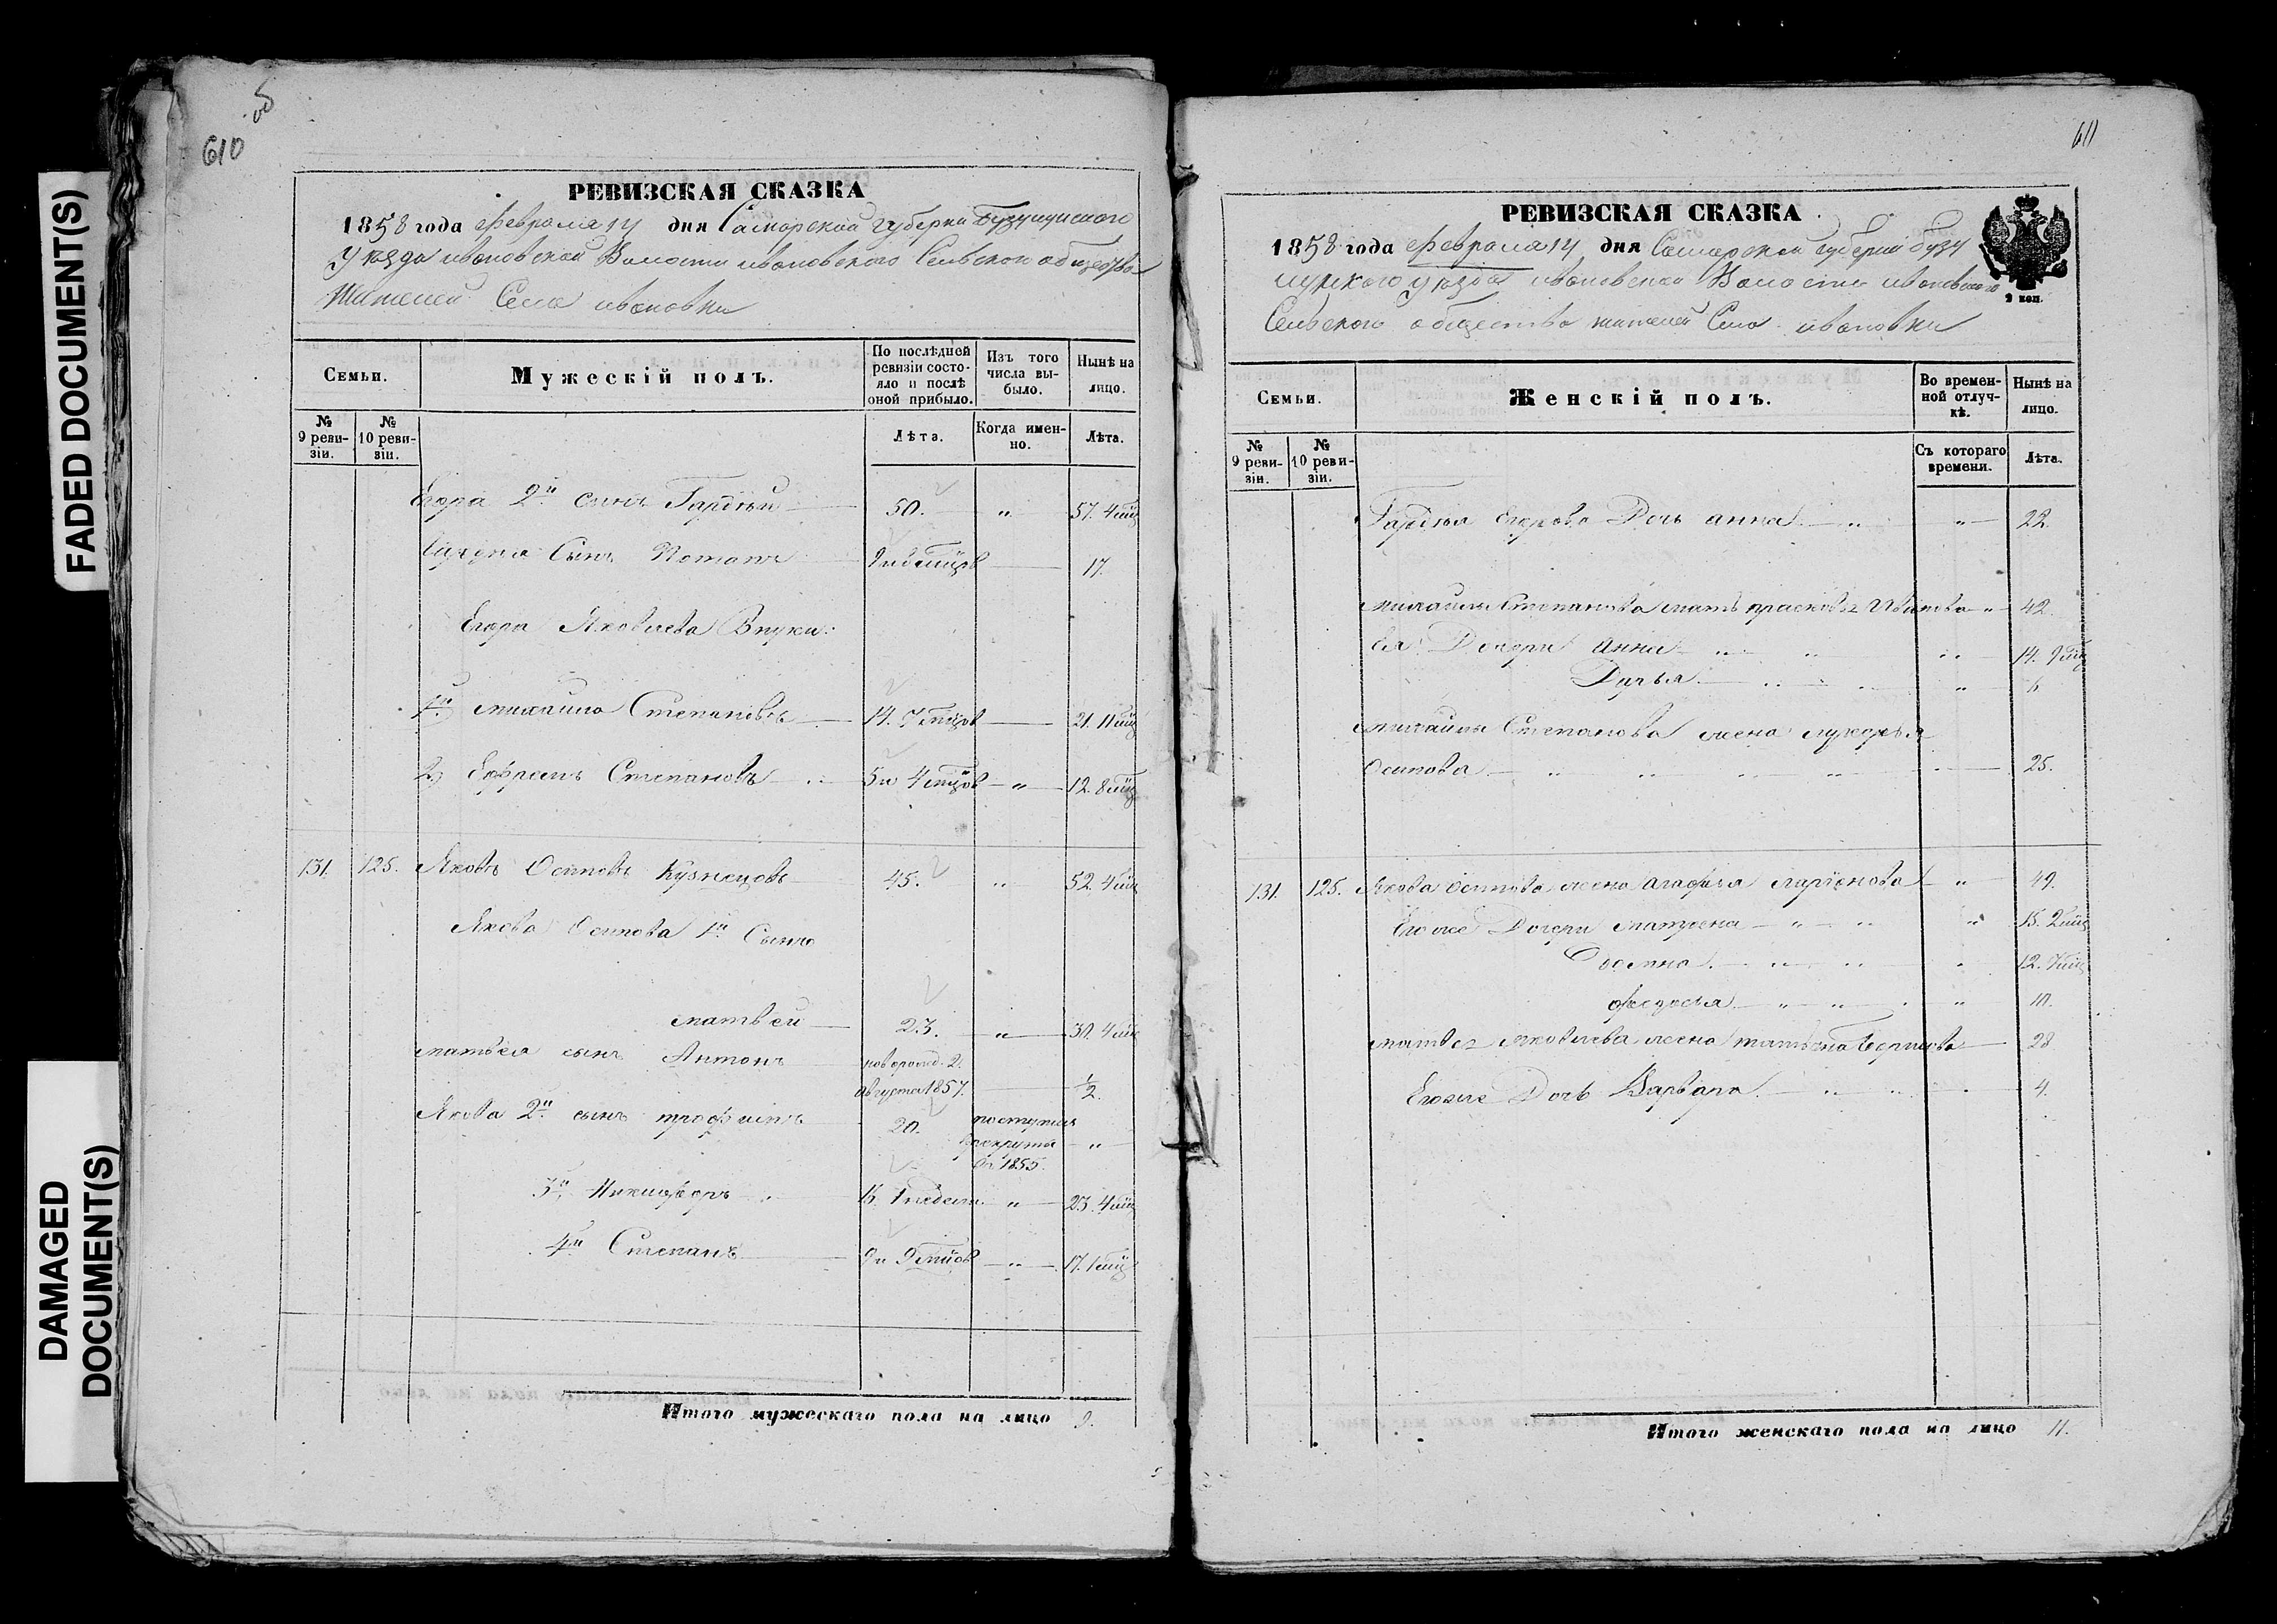 FADED DOCUMENT(S)
DAMAGED
DOCUMENT(S)
610 об
РЕВИЗСКАЯ СКАЗКА
1858 года февраля 14 дня Самарской Губернии Бузулуцкого
Уезда ивановской Волости ивановского Сельского общества
Жителей Села ивановки
Семьи.
Мужескій полъ.
По послѣдней ревизіи состояло и послѣ оной прибыло.
Изъ того числа выбыло.
Нынѣ на лицо.
№ 9 ревизіи.
№ 10 ревизіи.
Лѣта.
Когда именно.
Лѣта.
Егора 2й сынъ Гардѣй 50. " 57. 4 мцъ
сынъ Потапъ 17.
Егора Яковлева Внуки:
1й михаило Степановъ 14. 7 мцов 21. 11 мцъ
2) Ефремъ Степановъ 5 и 4 мцов " 12. 8 мцъ
131. 125. Яковъ Осиповъ Кузнецовъ 45. " 52. 4 мцъ
Якова Осипова 1й Сынъ
матвей 23. " 30. 4 мцъ
матвея сынъ Антонъ новорожд. 2.
августа 1857. 1/2
Якова 2й сынъ трофимъ 20. поступилъ
рекруты "
въ 1855.
3й Никифоръ 15. 1 недели. " 23. 4 мцъ
4й Степанъ 9 и 9 мцов " 17. 1 мцъ
Итого мужескаго пола на лицо 9.
611
РЕВИЗСКАЯ СКАЗКА
1858 года февраля 14 дня Самарской губернии бузу
луцкого уезда ивановской Волости ивановского
Сельского общества жителей Села ивановки
2 коп.
Семьи.
Женскій полъ.
Во временной отлучкѣ.
Нынѣ на лицо.
№ 9 ревизіи.
№ 10 ревизіи.
Съ котораго времени.
Лѣта.
Гардѣя Егорова Дочь анна " " 22.
михаилы Степанова мать прасковья Иванова " 42.
ея Дочери анна " " " 14. 9 мцъ
Дарья " " " 6
михаилы Степанова жена лукерья
Осипова " " " " 25.
131. 125. Якова Осипова жена агафья ларионова " 49.
Егоже Дочери матрена " " " 15. 2 мцъ
Домна " " " 12. 7 мцъ
федосья " " " 10.
матвея яковлева жена татьяна Борисова 28
Егоже Дочь Варвара " " 4.
Итого женскаго пола на лицо 11.